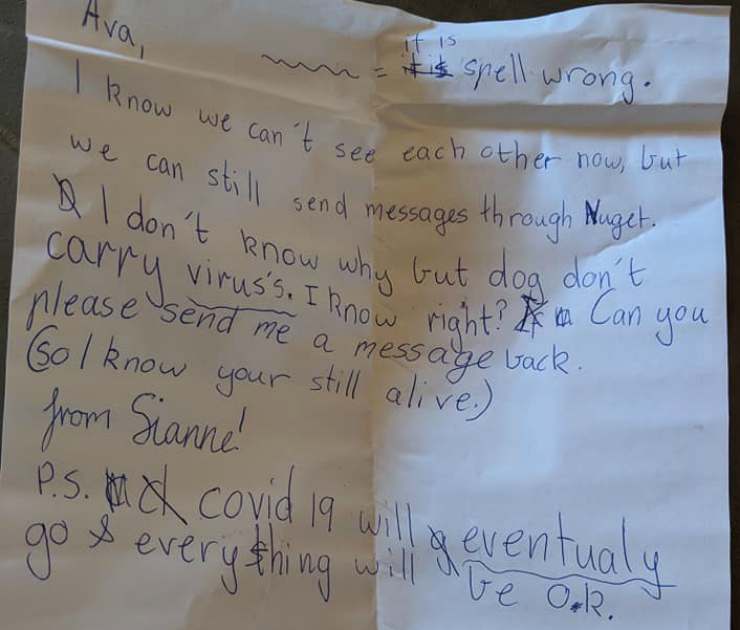 Ava,
~~~~ = it is spell wrong.
I know we can't see each other now, but
we can still send messages through Nuget.
I don't know why but dog don't
carry virus's. I know right? Can you
please send me a message back.
(So I know your still alive.)
from Sianne!
P.S. covid 19 will eventualy
go & everything will be O.K.